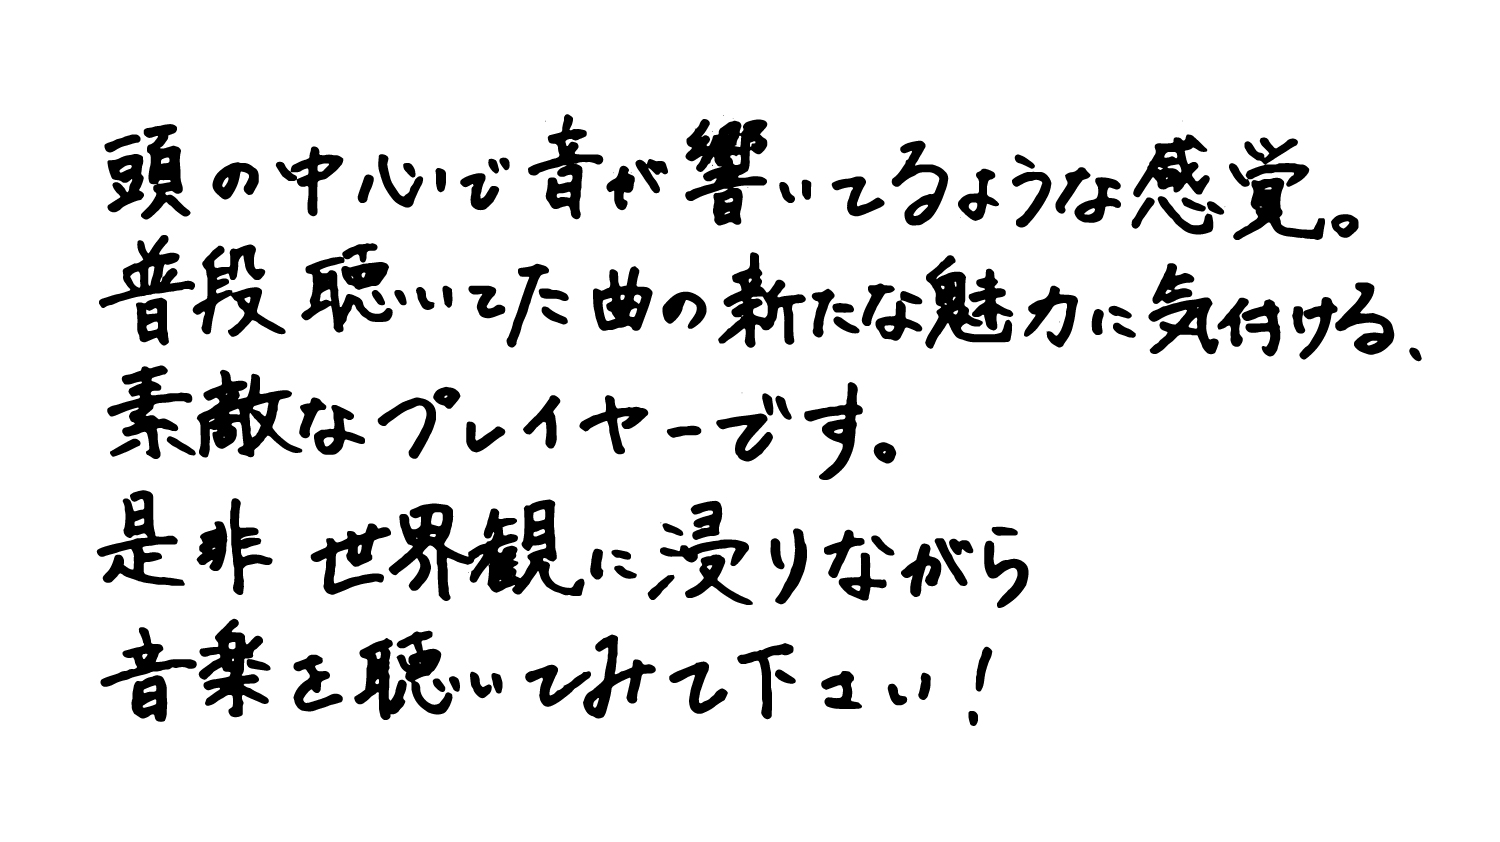 頭の中心で音が響いてるような感覚。
普段聴いてた曲の新たな魅力に気付ける、
素敵なプレイヤーです。
是非 世界観に浸りながら
音楽を聴いてみて下さい!